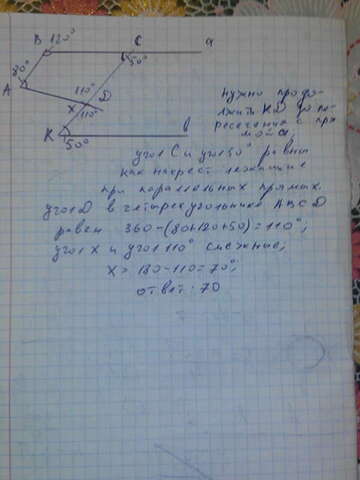 B 120° C a
50°
80°
A
110°
x D
110°
K в
50°
нужно продо-
лжить KD до пе-
ресечения с пря-
мой a;
угол C и угол 50° равны
как накрест лежащие
при параллельных прямых.
угол D в четырехугольнике ABCD
равен 360-(80+120+50)=110°;
угол x и угол 110° смежные;
x = 180-110=70°;
ответ: 70